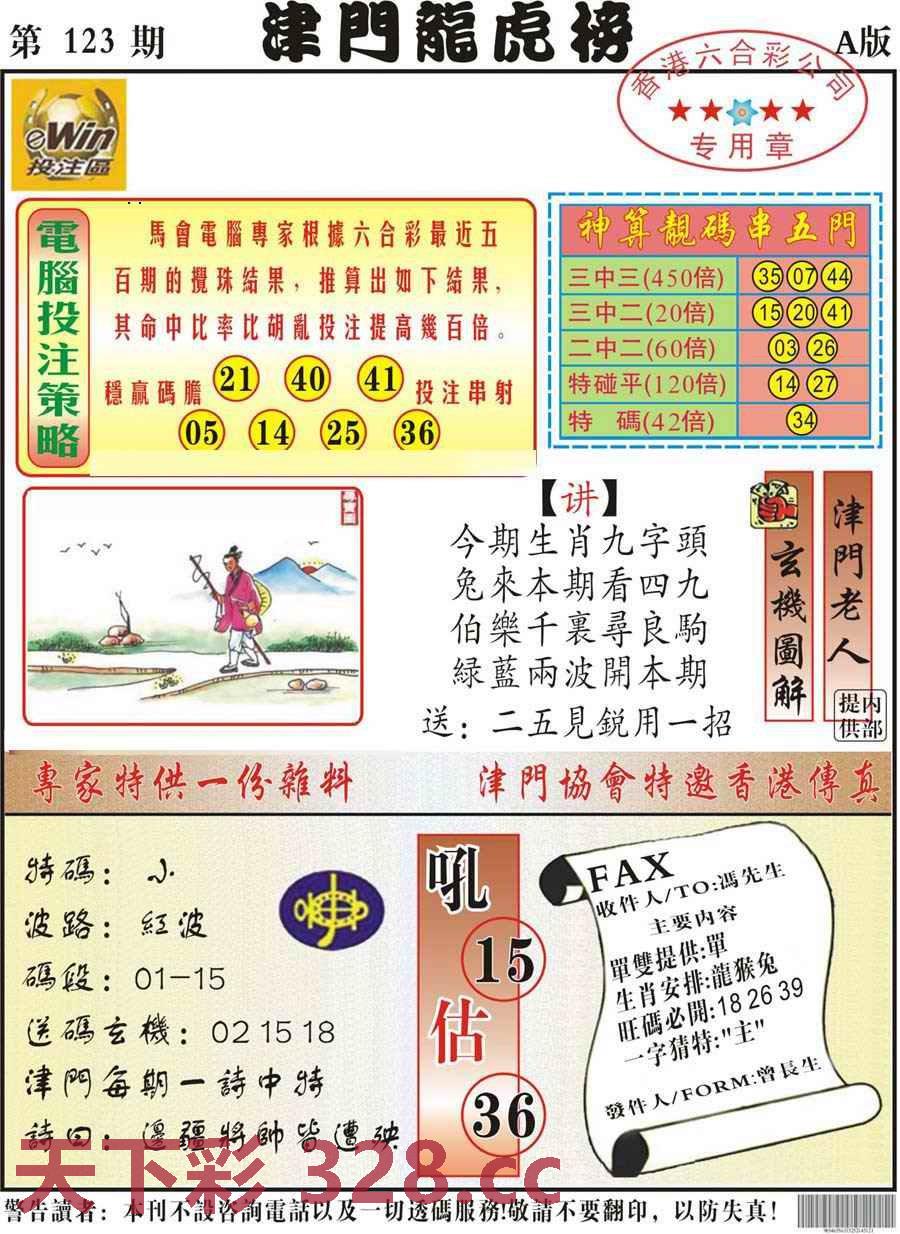 第 123 期
津門龍虎榜
A版
香港六合彩公司
专用章
eWin
投注區
電腦投注策略
馬會電腦專家根據六合彩最近五
百期的攪珠結果，推算出如下結果，
其命中比率比胡亂投注提高幾百倍。
穩贏碼膽 21 40 41 投注串射
05 14 25 36
神算靚碼串五門
三中三(450倍) 35 07 44
三中二(20倍) 15 20 41
二中二(60倍) 03 26
特碰平(120倍) 14 27
特 碼(42倍) 34
【讲】
今期生肖九字頭
兔來本期看四九
伯樂千裏尋良駒
緑藍兩波開本期
送：二五見鋭用一招
玄機圖解
津門老人
提内
供部
專家特供一份雜料
津門協會特邀香港傳真
特碼：小
波路：紅波
碼段：01-15
送碼玄機：02 15 18
津門每期一詩中特
詩曰：邊疆將帥皆遭殃
吼
15
估
36
FAX
收件人/TO:馮先生
主要内容
單雙提供:單
生肖安排:龍猴兔
旺碼必開:18 26 39
一字猜特:"主"
發件人/FORM:曾長生
天下彩 328.cc
警告讀者：本刊不設咨詢電話以及一切透碼服務!敬請不要翻印，以防失真!